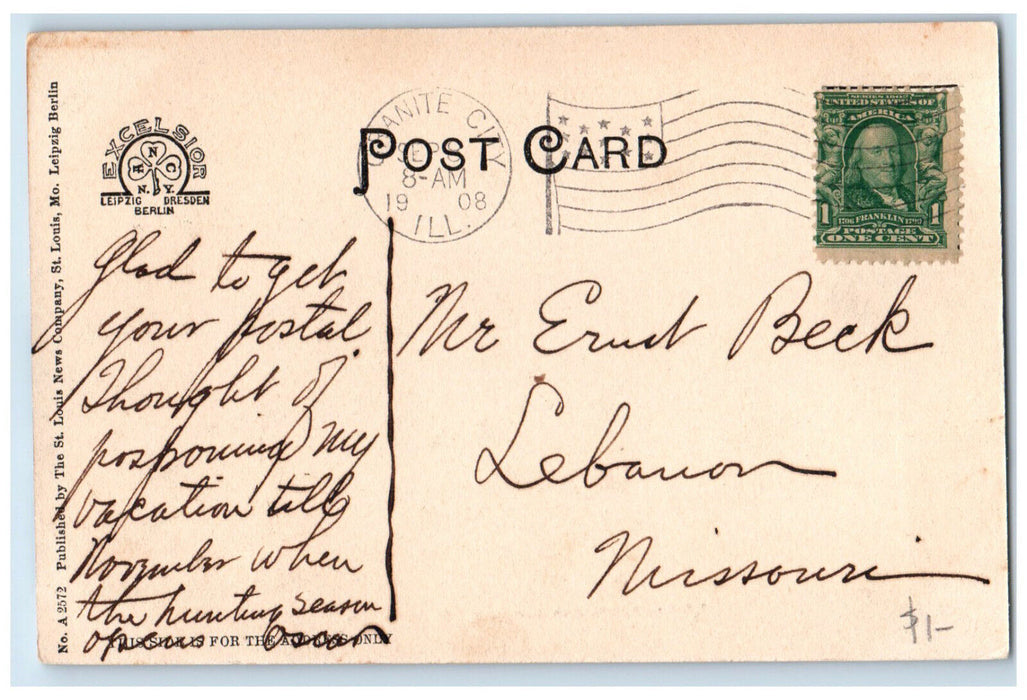 No. A 2572 Published by The St. Louis News Company, St. Louis, Mo. Leipzig Berlin
EXCELSIOR
N.
N.Y.
LEIPZIG DRESDEN
BERLIN
POST CARD
ANITE CITY
8-AM
19 08
ILL.
SERIES 1902
UNITED STATES OF
AMERICA
1 1
1706 FRANKLIN 1790
POSTAGE
ONE CENT
Glad to get
your postal
Thought of
postponing my
vacation till
November when
the hunting season
opens Oscar
THIS SIDE IS FOR THE ADDRESS ONLY
Mr Ernst Beck
Lebanon
Missouri
$1-